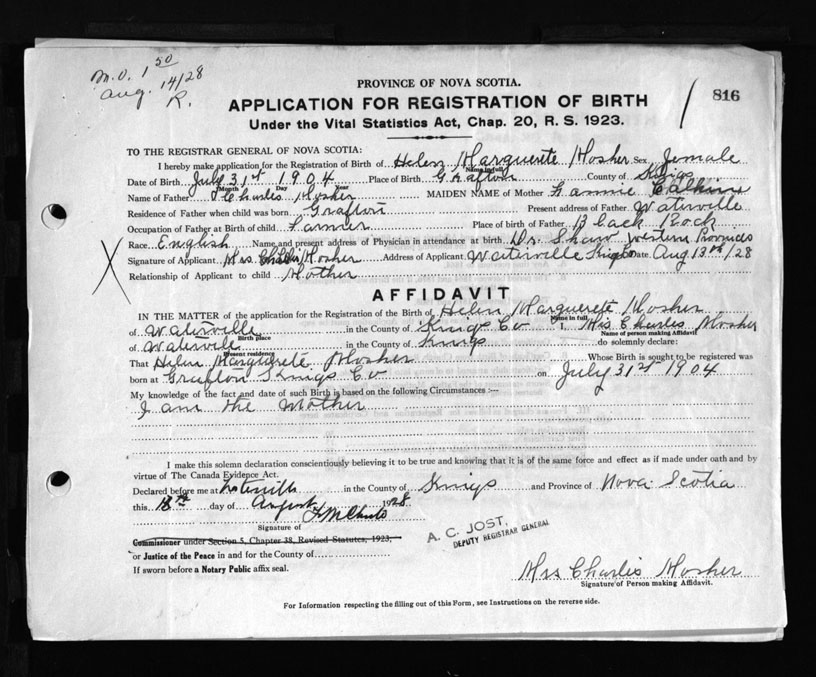 M.O. 1 50
Aug. 14/28
R.
816
PROVINCE OF NOVA SCOTIA.
APPLICATION FOR REGISTRATION OF BIRTH
Under the Vital Statistics Act, Chap. 20, R. S. 1923.
TO THE REGISTRAR GENERAL OF NOVA SCOTIA:
I hereby make application for the Registration of Birth of Helen Marguerete Mosher Sex Female
Name in full
Date of Birth July 31st 1904 Place of Birth Grafton County of Kings
Month Day Year
Name of Father Charles Mosher MAIDEN NAME of Mother Fannie Calkins
Residence of Father when child was born Grafton Present address of Father Waterville
Occupation of Father at Birth of child Farmer Place of birth of Father Black Rock
Race English Name and present address of Physician in attendance at birth Dr. Shaw Western Provinces
Signature of Applicant Mrs Charles Mosher Address of Applicant Waterville Kings Date Aug 13th/28
Relationship of Applicant to child Mother
AFFIDAVIT
IN THE MATTER of the application for the Registration of the Birth of Helen Marguerete Mosher
Name in full
of Waterville in the County of Kings Co I, Mrs Charles Mosher
Birth place Name of person making Affidavit
of Waterville in the County of Kings do solemnly declare:
Present residence
That Helen Marguerete Mosher Whose Birth is sought to be registered was
born at Grafton Kings Co on July 31st 1904
My knowledge of the fact and date of such Birth is based on the following Circumstances :—
I am the Mother
I make this solemn declaration conscientiously believing it to be true and knowing that it is of the same force and effect as if made under oath and by
virtue of The Canada Evidence Act.
Declared before me at in the County of Kings and Province of Nova Scotia
this day of August 1928
Signature of
Commissioner under Section 5, Chapter 38, Revised Statutes, 1923,
or Justice of the Peace in and for the County of
If sworn before a Notary Public affix seal.
A. C. JOST,
DEPUTY REGISTRAR GENERAL
Mrs Charles Mosher
Signature of Person making Affidavit.
For Information respecting the filling out of this Form, see Instructions on the reverse side.